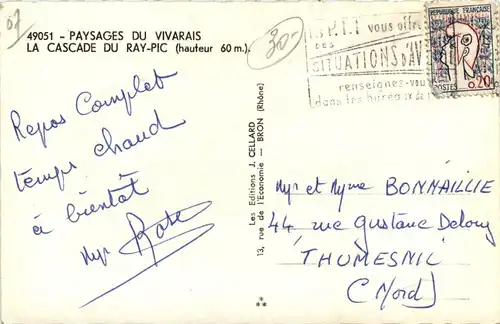 07
49051 - PAYSAGES DU VIVARAIS
LA CASCADE DU RAY-PIC (hauteur 60 m.).
30-
P.T.T vous offre
DES
SITUATIONS D'AV
renseignez-vou
dans les bureaux de
REPUBLIQUE FRANCAISE
POSTES 0,20
Repos Complet
temps chaud
à bientôt
Les Editions J. CELLARD
13, rue de l'Economie — BRON (Rhône)
et BONNAILLIE
44 rue Gustave Delory
THUMESNIL
(Nord)